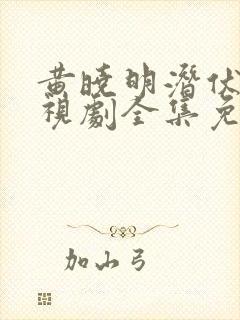 黄晓明潜伏
視劇全集免
加山弓